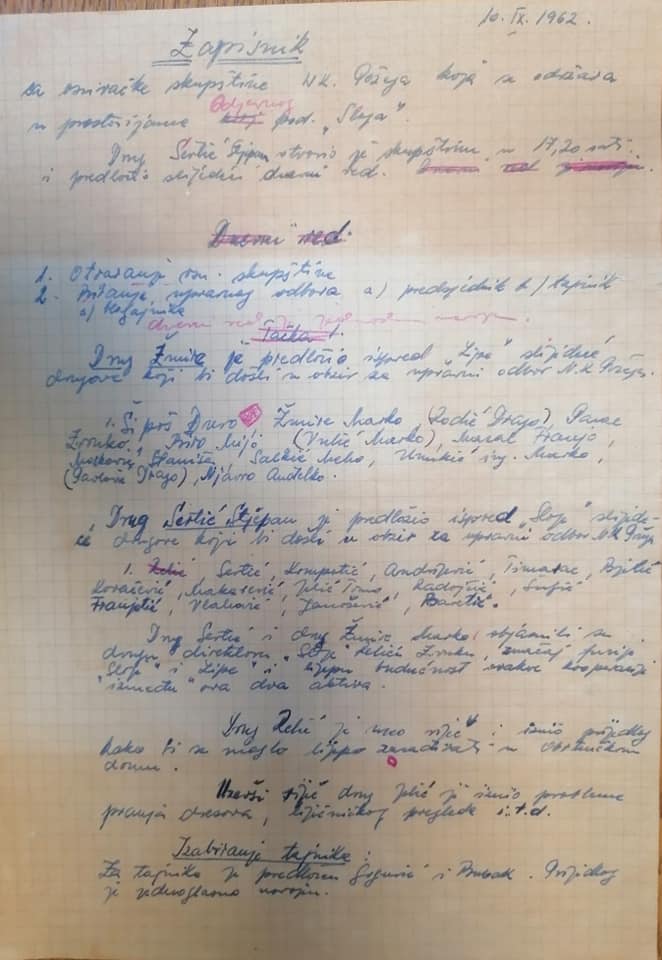 10. IX. 1962.
Zapisnik
sa osnivačke skupštine N.K. Požega koja se održava
Odjevnog
u prostorijama pod. "Sloga".
Drug Sertić Stjepan otvorio je skupštinu u 17,20 sati.
i predložio slijedeći dnevni red. Dnevni red
Dnevni red.
1. Otvaranje osn. skupštine
2. Biranje, upravnog odbora a) predsjednik b) tajnik
c) blagajnika
dnevni red je jednoglasno usvojen.
"Tačka 1.
Drug Žmire je predložio ispred "Lipe" slijedeće
drugove koji bi došli u obzir za upravni odbor N.K. Požega.
1. Šipoš Drevo Žmire Marko (Rodić Drago), Panac
Zvonko, Mijo (Vulić Marko), Mazal Franjo,
Stanišić, Salkić Meho, ing. Marko,
(Pavlović Drago), Anđelko.
"Drug Sertić Stjepan je predložio ispred "Sloge" slijede-
će drugove koji bi došli u obzir za upravni odbor N.K. Požega
1. Sertić, Krmpotić, Andrijević, Timarac,
Kovačević, Makarević, Jelić Tomo, Radojčić,
Franjetić, Vlahović, Janošević, Baretić.
Drug Sertić i drug Žmire Marko objasnili su
drugu direktoru "Sloge" Zvonku, značaj fuzije
"Sloge" i "Lipe" i lijepu budućnost ovakve kooperacije
između ova dva aktiva.
Drug je uzeo riječ i iznio prijedlog
kako bi se moglo lijepo zarađivati u Obrtničkom
domu.
Uzevši riječ drug Jelić je iznio probleme
pranja dresova, liječničkog pregleda i.t.d.
Izabiranje tajnika:
Za tajnika je predložen Grgurić i Brebak. Prijedlog
je jednoglasno usvojen.